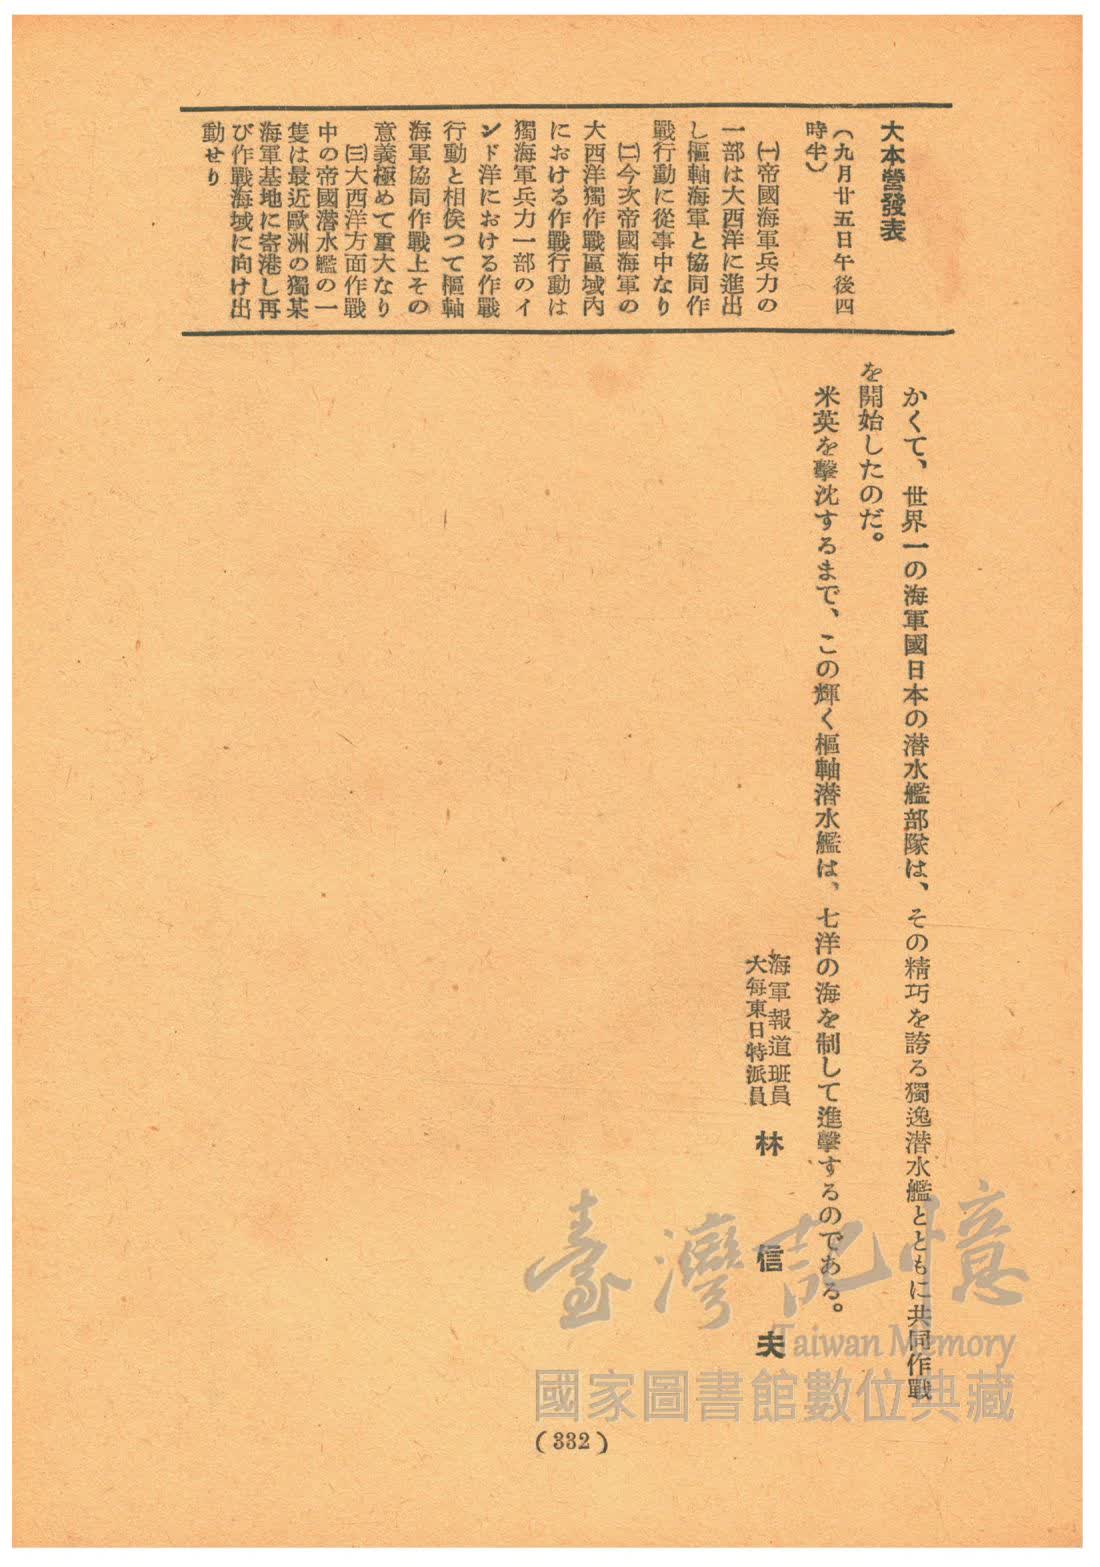 大本營發表
（九月廿五日午後四
時半）
㈠帝國海軍兵力の
一部は大西洋に進出
し樞軸海軍と協同作
戰行動に從事中なり
㈡今次帝國海軍の
大西洋獨作戰區域内
における作戰行動は
獨海軍兵力一部のイ
ンド洋における作戰
行動と相俟つて樞軸
海軍協同作戰上その
意義極めて重大なり
㈢大西洋方面作戰
中の帝國潜水艦の一
隻は最近歐洲の獨某
海軍基地に寄港し再
び作戰海域に向け出
動せり
かくて、世界一の海軍國日本の潜水艦部隊は、その精巧を誇る獨逸潜水艦とともに共同作戰
を開始したのだ。
米英を擊沈するまで、この輝く樞軸潜水艦は、七洋の海を制して進擊するのである。
海軍報道班員
大每東日特派員
林信夫
臺灣記憶
Taiwan Memory
國家圖書館數位典藏
(332)